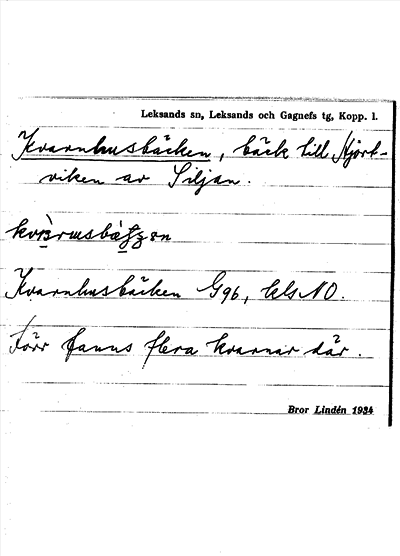 Leksands sn, Leksands och Gagnefs tg, Kopp. l.
Kvarnhusbäcken, bäck till Hjort-
viken av Siljan.
Kvarnhusbäcken G96, bls. NO.
Förr fanns flera kvarnar där.
Bror Lindén 1934